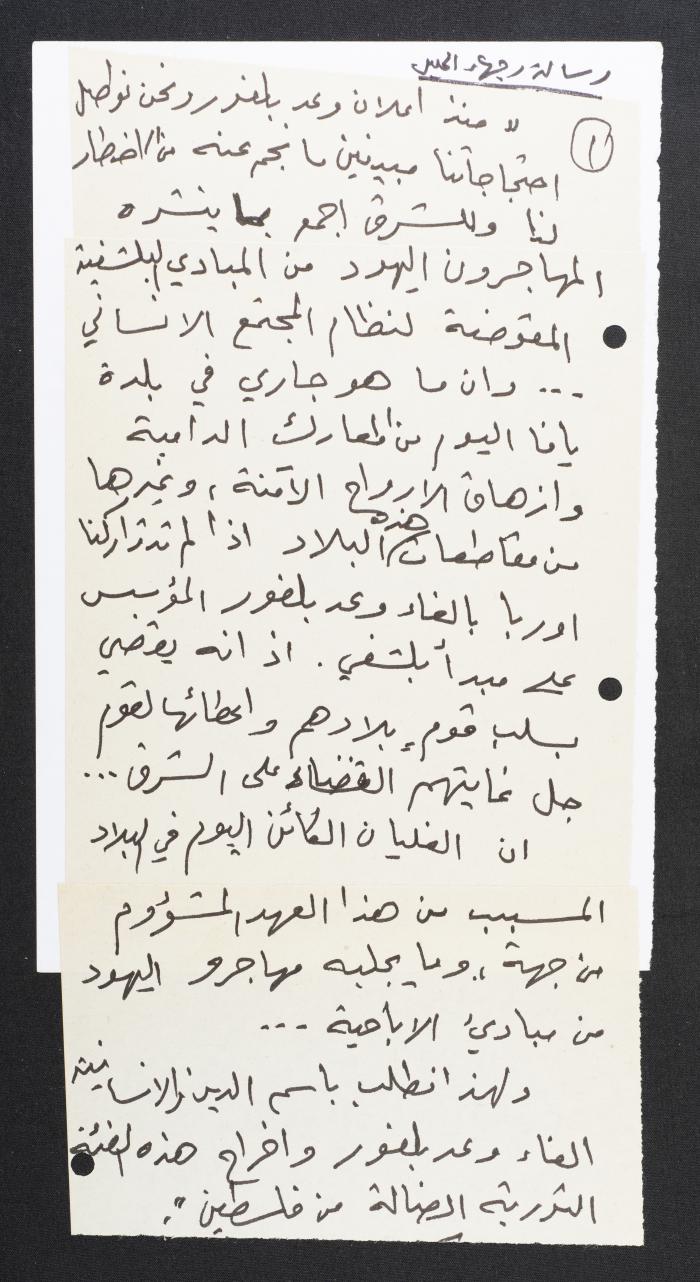 رسالة وجهاء الخليل
(١)
« منذ اعلان وعد بلفور ونحن نواصل
احتجاجاتنا مبينين ما نجم عنه من اضطار
لنا وللشرق اجمع بما ينشره
المهاجرون اليهود من المبادئ البلشفية
المقوضة لنظام المجتمع الانساني
... وان ما هو جاري في بلدة
يافا اليوم من المعارك الدامية
وازهاق الارواح الآمنة ، وغيرها
من مقاطعات هذه البلاد اذا لم تتداركنا
اوربا بالغاء وعد بلفور المؤسس
على مبدأ بلشفي . اذ انه يقضي
بسلب قوم بلادهم واعطائها لقوم
جل غايتهم القضاء على الشرق ...
ان الغليان الكائن اليوم في البلاد
المسبب من هذا العهد المشؤوم
من جهة ، وما يجلبه مهاجرو اليهود
من مبادئ الاباحية ...
ولهذا نطلب باسم الدين والانسانية
الغاء وعد بلفور واخراج هذه الفئة
الثورية الضالة من فلسطين ».